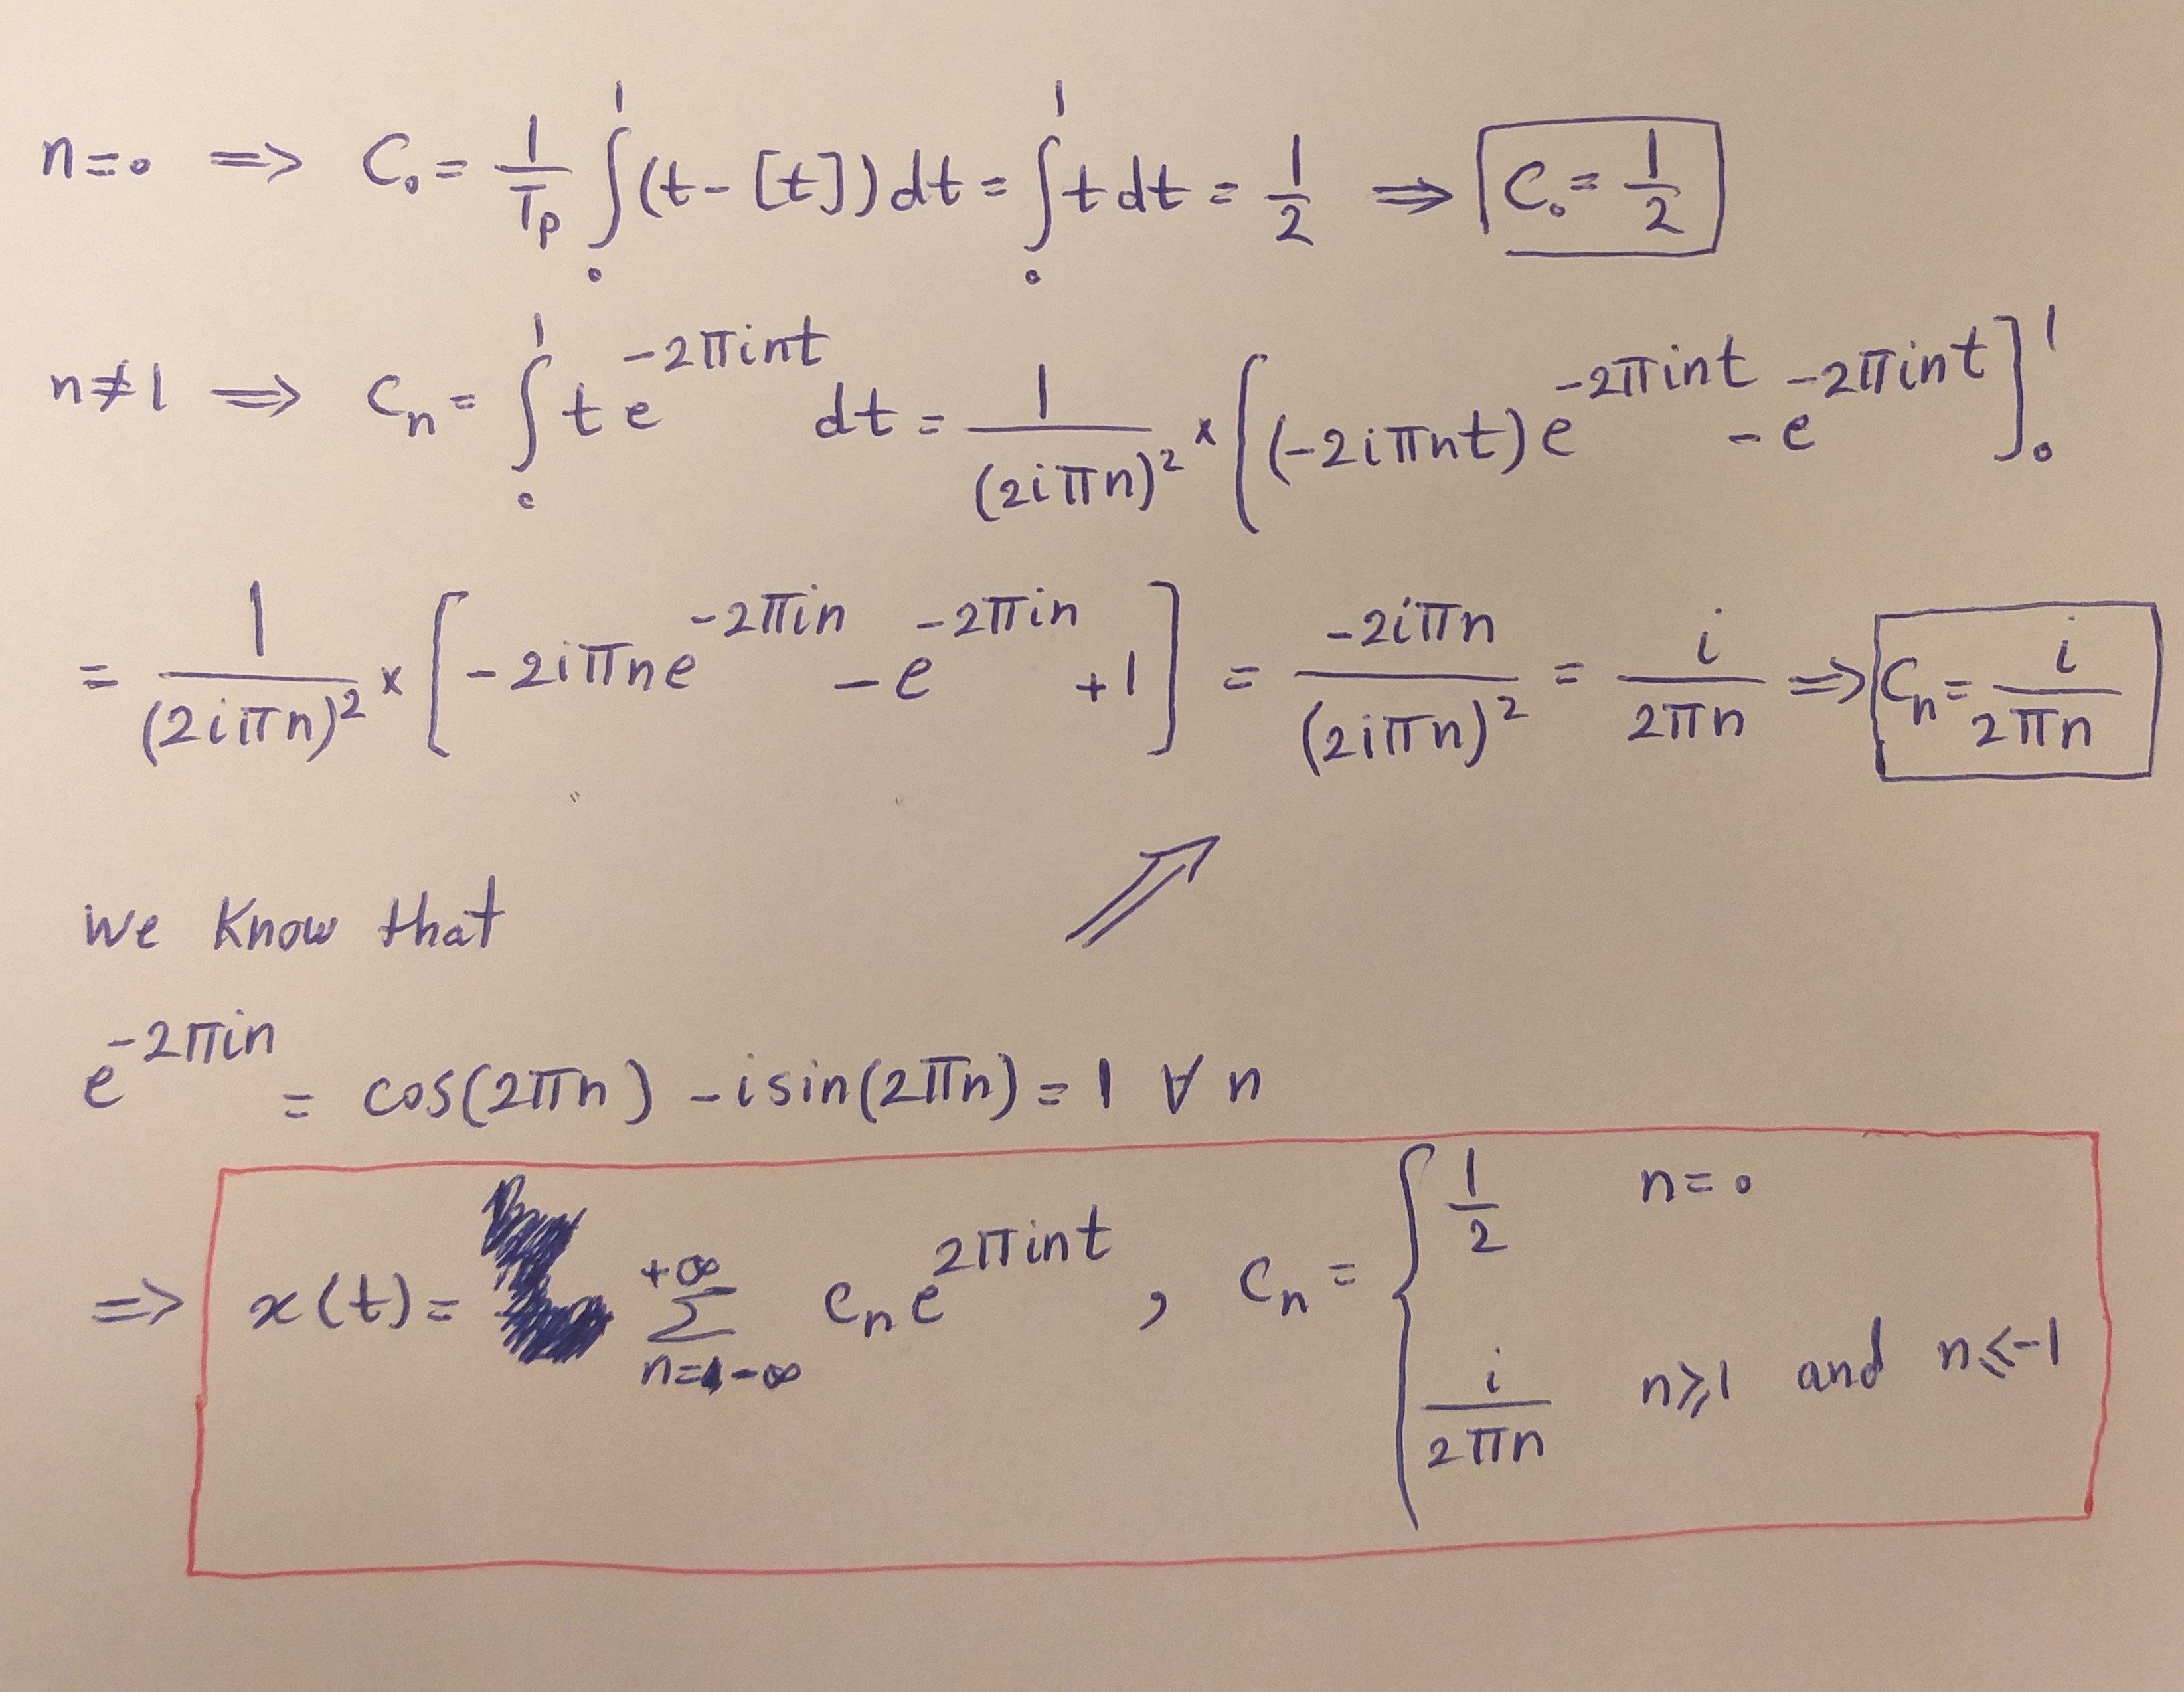 n=0 ⇒ C₀ = 1/Tp ∫₀¹ (t-[t]) dt = ∫₀¹ t dt = 1/2 ⇒ C₀ = 1/2
n≠1 ⇒ Cn = ∫₀¹ t e^(-2πint) dt = 1/(2iπn)² × [(-2iπnt) e^(-2πint) - e^(-2πint)]₀¹
= 1/(2iπn)² × [-2iπn e^(-2πin) - e^(-2πin) + 1] = -2iπn/(2iπn)² = i/(2πn) ⇒ Cn = i/(2πn)
we know that
e^(-2πin) = cos(2πn) - i sin(2πn) = 1 ∀ n
⇒ x(t) = Σ_(n=-∞)^(+∞) cn e^(2πint) , cn = { 1/2 n=0
i/(2πn) n⩾1 and n⩽-1